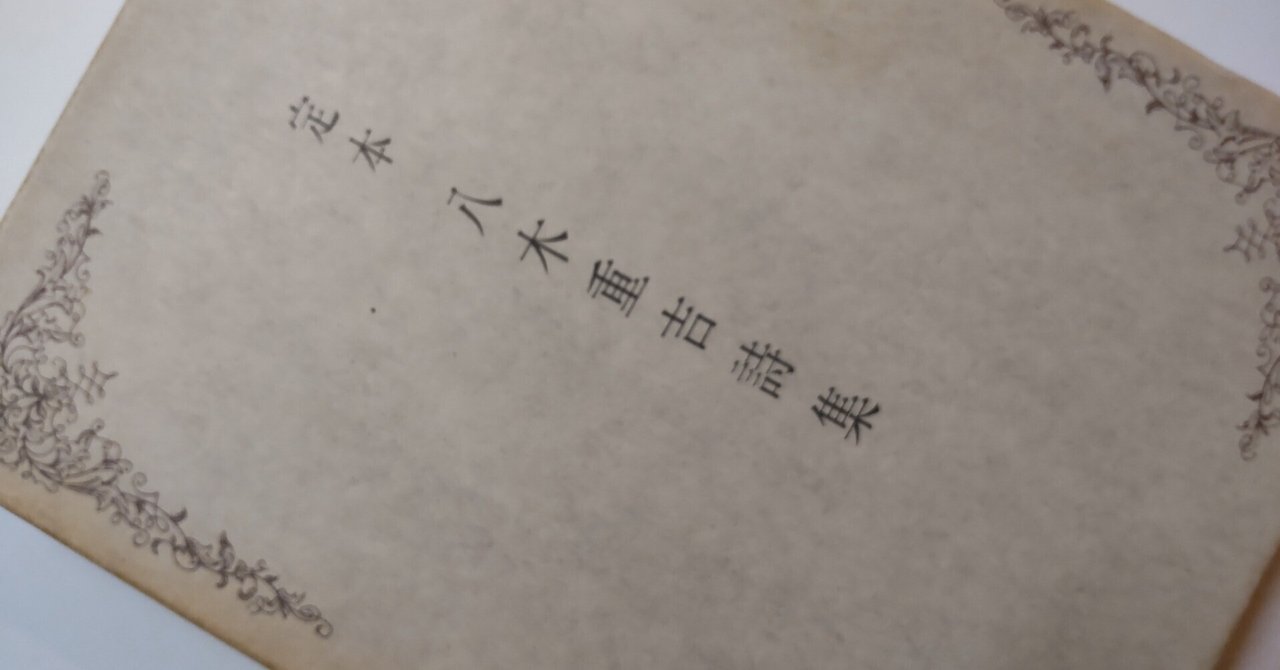 定本 八木重吉詩集